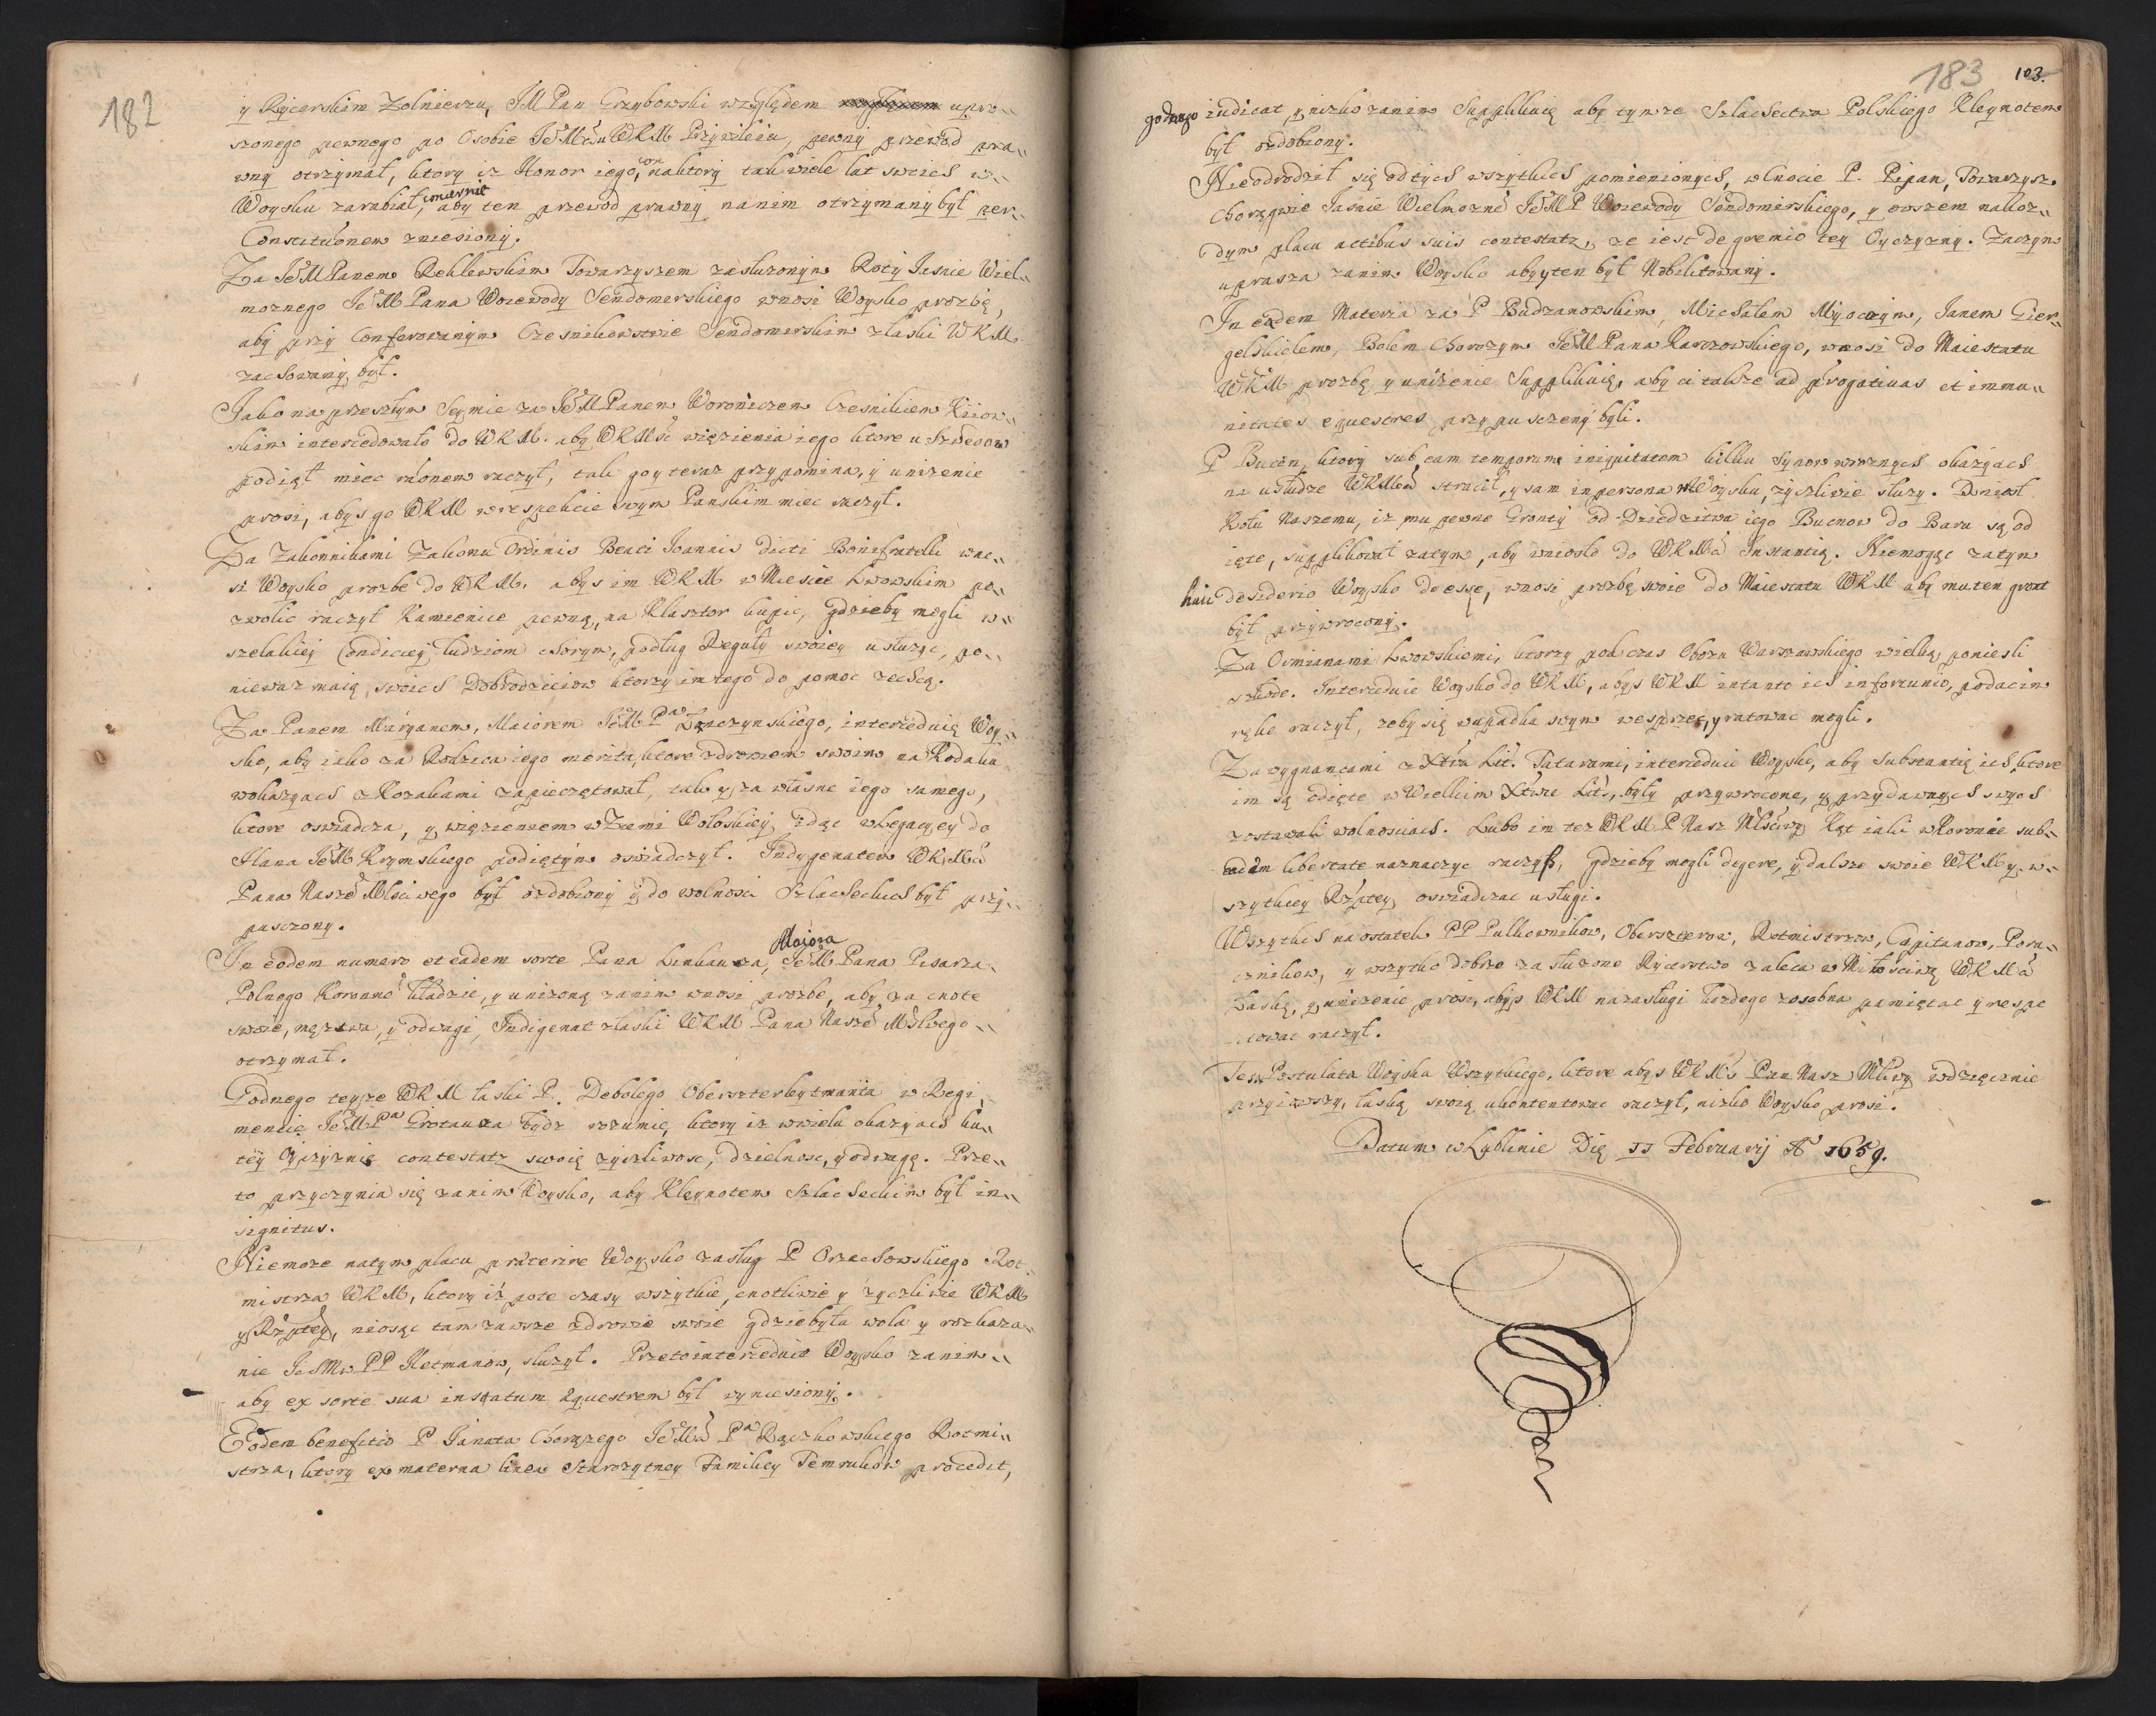 182
y Rycerskim Zolnierzu, JM Pan Grzybowski względem upro„
szonego pewnego po Osobie JeoMći u WKM Przywileiu, pewny przewod pra„
wny otrzymał, ktory iż Honor iego, na ktory tak wiele lat swoich w„
Woysku zarabiał, aby ten przewod prawny na nim otrzymany był per„
Constitutionem zniesiony.
Za JeoM Panem Reklewskim Towarzyszem zasłużonym Roty Jasnie Wiel„
moznego JeoM Pana Woiewody Sendomerskiego wnosi Woysko prozbę,
aby przy Conferowanym Czesnikowstwie Sendomerskim z łaski WKM
zachowany był.
Jako na przeszłym Seymie za JeoM Panem Woroniczem Czesnikiem Kiiow„
skim intercedowało do WKM. aby WKMść więzienia iego ktore u Szwedow
podiął miec racyonem raczył, tak go y teraz przypomina, y unizenie
prosi, abys go WKM w respekcie swym Panskim miec raczył.
Za Zakonnikami Zakonu Ordinis Beati Joannis dicti Bonifratelli wno„
si Woysko prozbe do WKM. abys im WKM w Miescie Lwowskim po„
zwolic raczył Kamienice pewną, na Klasztor kupic, gdzieby mogli w„
szelakiey Condiciey ludziom chorym, podług Reguły swoiey usłużyc, po„
niewaz maią swoich Dobrodzieiow ktorzy im tego do pomoc zechcą.
Za Panem Maryanem, Maiorem JeoM Pa Łączynskiego, interceduię Woy„
sko, aby iako za Rodzica iego merita, ktore zdrowiem swoim na Kodaku
w okazyach z Kozakami zapieczętował, tak y za własne iego samego,
ktore oswiadcza, y więzieniem w Ziemi Wołoskiey, idąc w Legacyey do
Hana JeoM Krymskiego podiętym oswiadczył. Indygenatem WKMći
Pana Naszeo Mściwego był ozdobiony y do wolnosci Szlacheckich był przy„
pusczony.
In eodem numero et eadem sorte Pana Linkauza, Majora JeoM Pana Pisarza
Polnego Koronneo kładzie, y unizoną za nim wnosi prozbe, aby za cnote
swoie, męztwa, y odwagi, Indigenat z łaski WKM Pana Naszeo Mściwego„
otrzymał.
Godnego teyze WKM łaski P. Debolego Oberszterleytmanta w Regi„
mencie JeoM Pa Grotauza bydz rozumie, ktory iz w wielu okazyach ku
tey Oyczyznie contestatz swoię zyczliwosc, dzielnosc, y odwagę. Prze„
to przyczynia się za nim Woysko, aby Kleynotem Szlacheckim był in„
signitus.
Niemoze na tym placu præterire Woysko zasług P Orzechowskiego Rot„
mistrza WKM, ktory iż po te czasy wszytkie, cnotliwie y zyczliwie WKM
y Rzptey, niosąc tam zawsze zdrowie swoie gdzie była wola y rozkaza„
nie JchMw PP Hetmanow, służył. Przeto interceduie Woysko za nim„
aby ex sorte sua in statum Equestrem był wyniesiony.
Eodem beneficio P Janata Chorązego JeoMći Pa Rączkowskiego Rotmi„
strza, ktory ex materna linea Starozytney Familiey Temrukow procedit,
183 103.
godnego iudicat, y nizko za nim Supplikuię aby tymze Szlachectwa Polskiego Kleynotem
był ozdobiony.
Nie odrodził się od tych wszytkich pomienionych, w cnocie P. Pijan, Towarzysz
Chorągwie Jasnie Wielmozneo JeoM P Woiewody Sendomirskiego, y owszem na kaz„
dym placu actibus suis contestatz, ze iest de gremio tey Oyczyzny. Zaczym
uprasza za nim Woysko aby y ten był Nobilitowany.
In eadem Materia za P Budzanowskim, Michałem Myoczym, Janem Gier„
gelskiolem, Bolem Chorozym JeoM Pana Karczowskiego, wnosi do Maiestatu
WKM prozbę y unizenie Supplikuię, aby ci takze ad prærogatiuas et immu„
nitates equestres przypusczeny byli.
P Bucen, ktory sub eam temporum iniquitatem kilku synow w roznych okazyach
na usłudze WKMći stracił, y sam in persona w Woysku, zyczliwie słuzy. Doniosł
Kołu Naszemu, iz mu pewne Gronty od Dziedzitwa iego Bucnow do Baru są od
ięte, supplikował zatym, aby wniosło do WKMći Instantią. Niemogąc zatym
huic desiderio Woysko deesse, wnosi prozbę swoie do Maiestatu WKM aby mu ten gront
był przywrocony.
Za Ormianami Lwowskiemi, ktorzy podczas Obozu Warszawskiego wielką poniesli
szkode. Interceduie Woysko do WKM, abys WKM in tanto ich infortunio, podac im
rękę raczył, zeby się w upadku swym wesprzec, y ratowac mogli.
Za wygnancami z Xtwa Lit. Tatarami, interceduie Woysko, aby Substantię ich ktore
im są odięte w Wielkim Xtwie Lit, były przywrocone, y przy dawnych swych
zostawali wolnosciach. Lubo im tez WKM P Nasz Mściwy Kąt iaki w Koronie sub
eadem libertate naznaczyc raczysz, gdzieby mogli degere, y dalsze swoie WKM y w„
szytkiey Rzptey, oswiadczac usługi.
Wszytkich na ostatek PP Pułkownikow, Oberszterow, Rotmistrzow, Capitanow, Poru„
cznikow, y wszytko dobrze zasłuzone Rycerstwo zaleca w Miłosciwą WKMći
Łaskę, y unizenie prosi, abys WKM na zasługi kazdego zosobna pamiętac y respe
ctowac raczył.
Te są Postulata Woyska Wszytkiego, ktore abys WKMść Pan Nasz Mściwy wdzięcznie
przyiąwszy, łaską swoią ukontentowac raczył, nizko Woysko prosi.
Datum w Lublinie Die 11 Februarij Ao 1659.